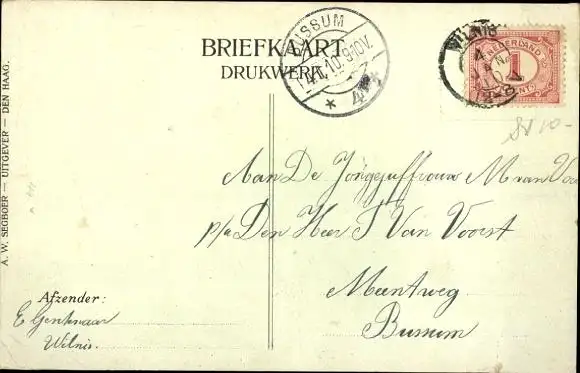 BRIEFKAART
DRUKWERK
BUSSUM
4.1.10.9-10V.
WILNIS
4 JAN. 10
NEDERLAND
1
CENT
A. W. SEGBOER — UITGEVER — DEN HAAG.
Aan De Jongejuffrouw M van Voo
p/a Den Heer J Van Voorst
Meentweg
Bussum
Afzender:
E Gentenaar
Wilnis.